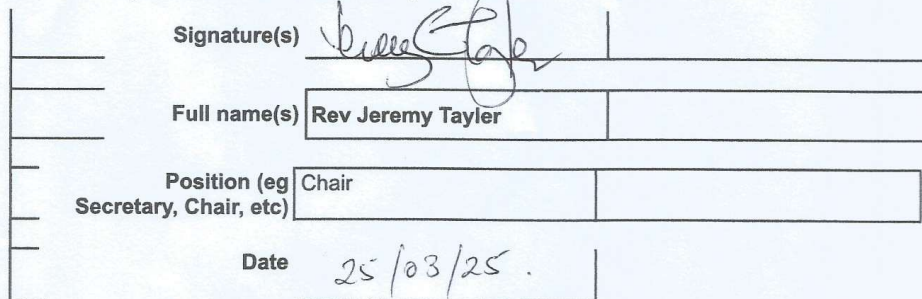 Signature(s)
Full name(s) Rev Jeremy Tayler
Position (eg Chair
Secretary, Chair, etc)
Date 25/03/25.